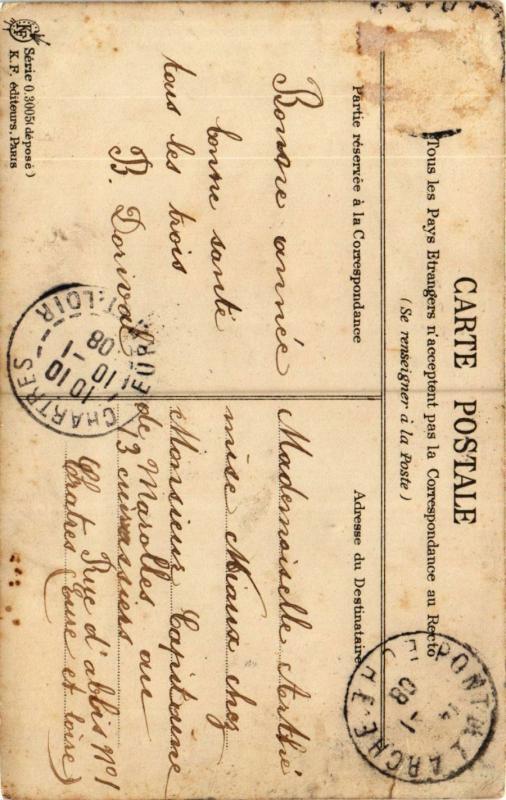 CARTE POSTALE
Tous les Pays Etrangers n'acceptent pas la Correspondance au Recto
(Se renseigner à la Poste)
Partie réservée à la Correspondance
Adresse du Destinataire
Bonne année
bonne santé
tous les trois
B. Dorival
Mademoiselle
mise Miaux chez
Monsieur Capitaine
de Marolles au
13 cuirassiers
Rue d'ablis N°1
Chatres Eure et Loire)
CHARTRES
10 10
10 -1
08
EURE-ET-LOIR
PONT-DE-L'ARCHE
08
Série O.3005 (déposé)
K. F. éditeurs, PARIS
KF